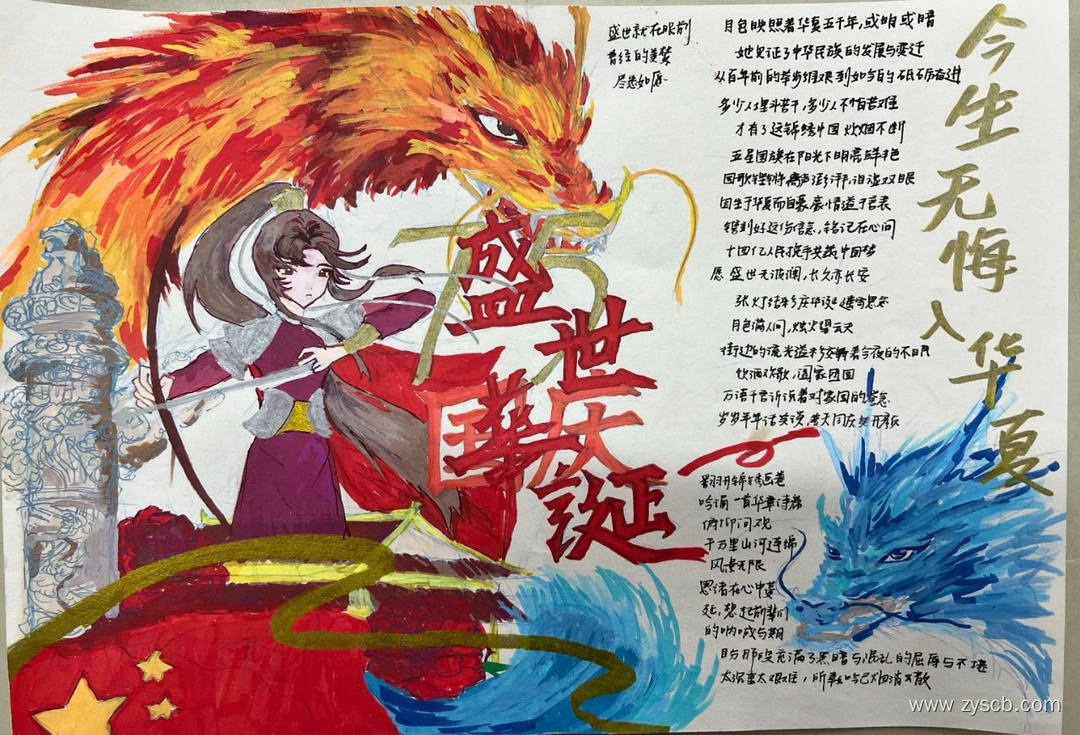 盛世就在眼前
曾经的美梦
尽悉如愿
月色映照着华夏五千年,或明或暗
她见证了中华民族的发展与变迁
从百年前的举步维艰到如今的砥砺奋进
多少人埋头苦干,多少人不怕苦难
才有了这锦绣中国 炊烟不断
五星国旗在阳光下明亮鲜艳
国歌铿锵,声澎湃,泪湿双眼
因生于华夏而自豪,豪情溢于言表
铭记在心间
十四亿人民携手共筑中国梦
愿盛世无波澜,长久亦长安
张灯结彩庆华诞 遥寄思念
月色满人间,烟火望云天
街边的流光溢彩交织着今夜的不眠
饮酒欢歌,阖家团圆
万语千言诉说着对家国的
岁岁年年话笑谈,普天同庆笑开颜
今生无悔入华夏
75
盛世
国庆
华诞
翻开锦绣画卷
吟诵一首华章诗篇
俯仰间
千万里山河连绵
风景无限
思绪在心中蔓
延,想起前辈们
的呐喊与期
盼那段充满了黑暗与混乱的屈辱与不堪
太沉重太艰难,所幸如今已烟消云散
www.zyscb.com